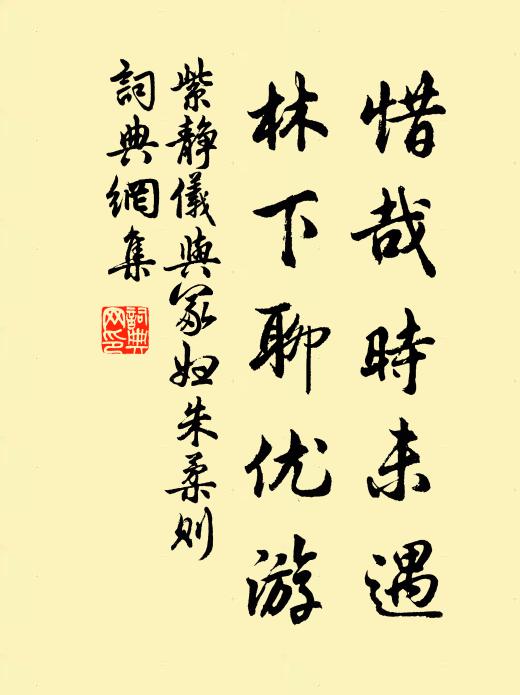 惜哉時未遇
林下聊优游
紫静儀與冢妇朱柔则
詞典網集
詞典
网印